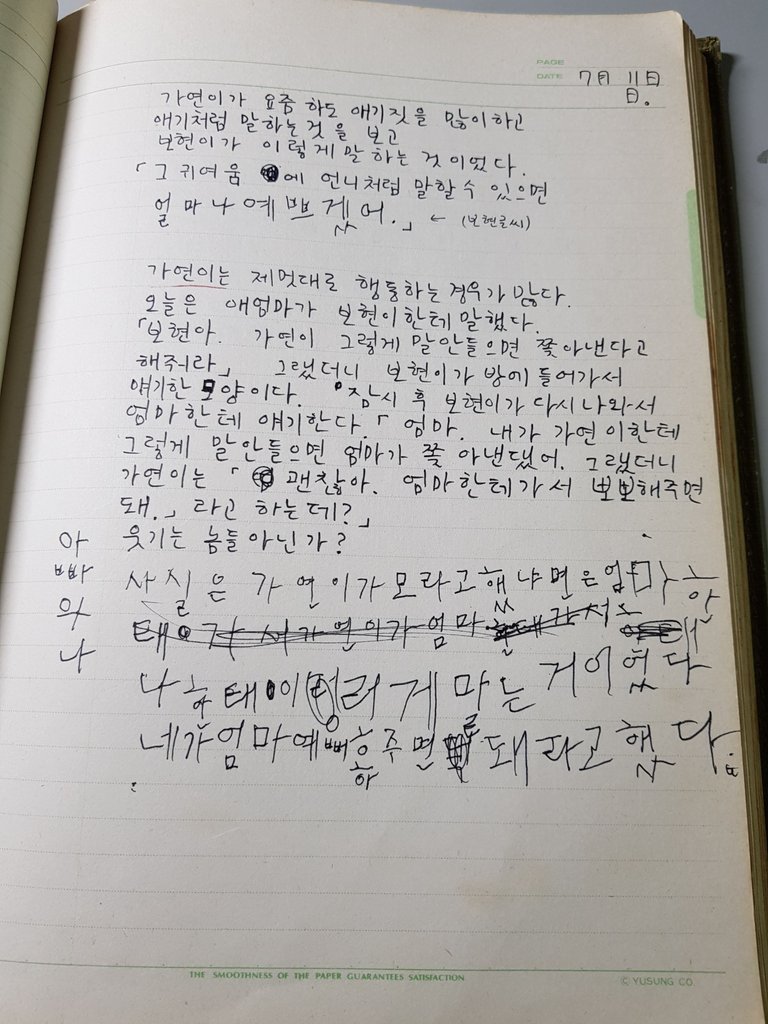 PAGE
DATE 7月 11日
日.
가연이가 요즘 하도 애기짓을 많이하고
애기처럼 말하는것을 보고
보현이가 이렇게 말하는 것이었다.
「그 귀여움에 언니처럼 말할 수 있으면
얼마나 예쁘겠어.」 ← (보현글씨)
가연이는 제멋대로 행동하는 경우가 많다.
오늘은 애엄마가 보현이한테 말했다.
「보현아. 가연이 그렇게 말안들으면 쫓아낸다고
해줘라」 그랬더니 보현이가 방에 들어가서
얘기한 모양이다. 잠시 후 보현이가 다시 나와서
엄마한테 얘기한다. 「엄마. 내가 가연이한테
그렇게 말안들으면 엄마가 쫓아낸댔어. 그랬더니
가연이는 「괜찮아. 엄마한테가서 뽀뽀해주면
돼.」 라고 하는데?」
웃기는 놈들 아닌가?
아빠와 나
사실은 가연이가 모라고했냐면은엄마한
태
나한태이러게마는거이었다
네가엄마예뻐해주면돼라고했다.
THE SMOOTHNESS OF THE PAPER GUARANTEES SATISFACTION
© YUSUNG CO.